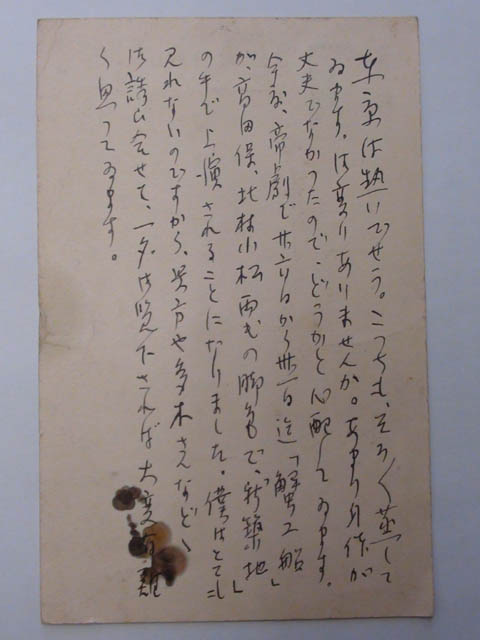 東京は熱いでせう。こつちも、そろ〱蒸して
ゐます。お変りありませんか。あまり身体が
丈夫でなかつたので、どうかと心配してゐます。
今度、帝劇で廿六日から卅一日迄「蟹工船」
が、高田保、北村小松両氏の脚色で、「新築地」
の手で上演されることになりました。僕はとても
見れないのですから、貴方や多木さんなど、
お誘ひ合せて、一夕御覧下されば大変有難
く思つてゐます。